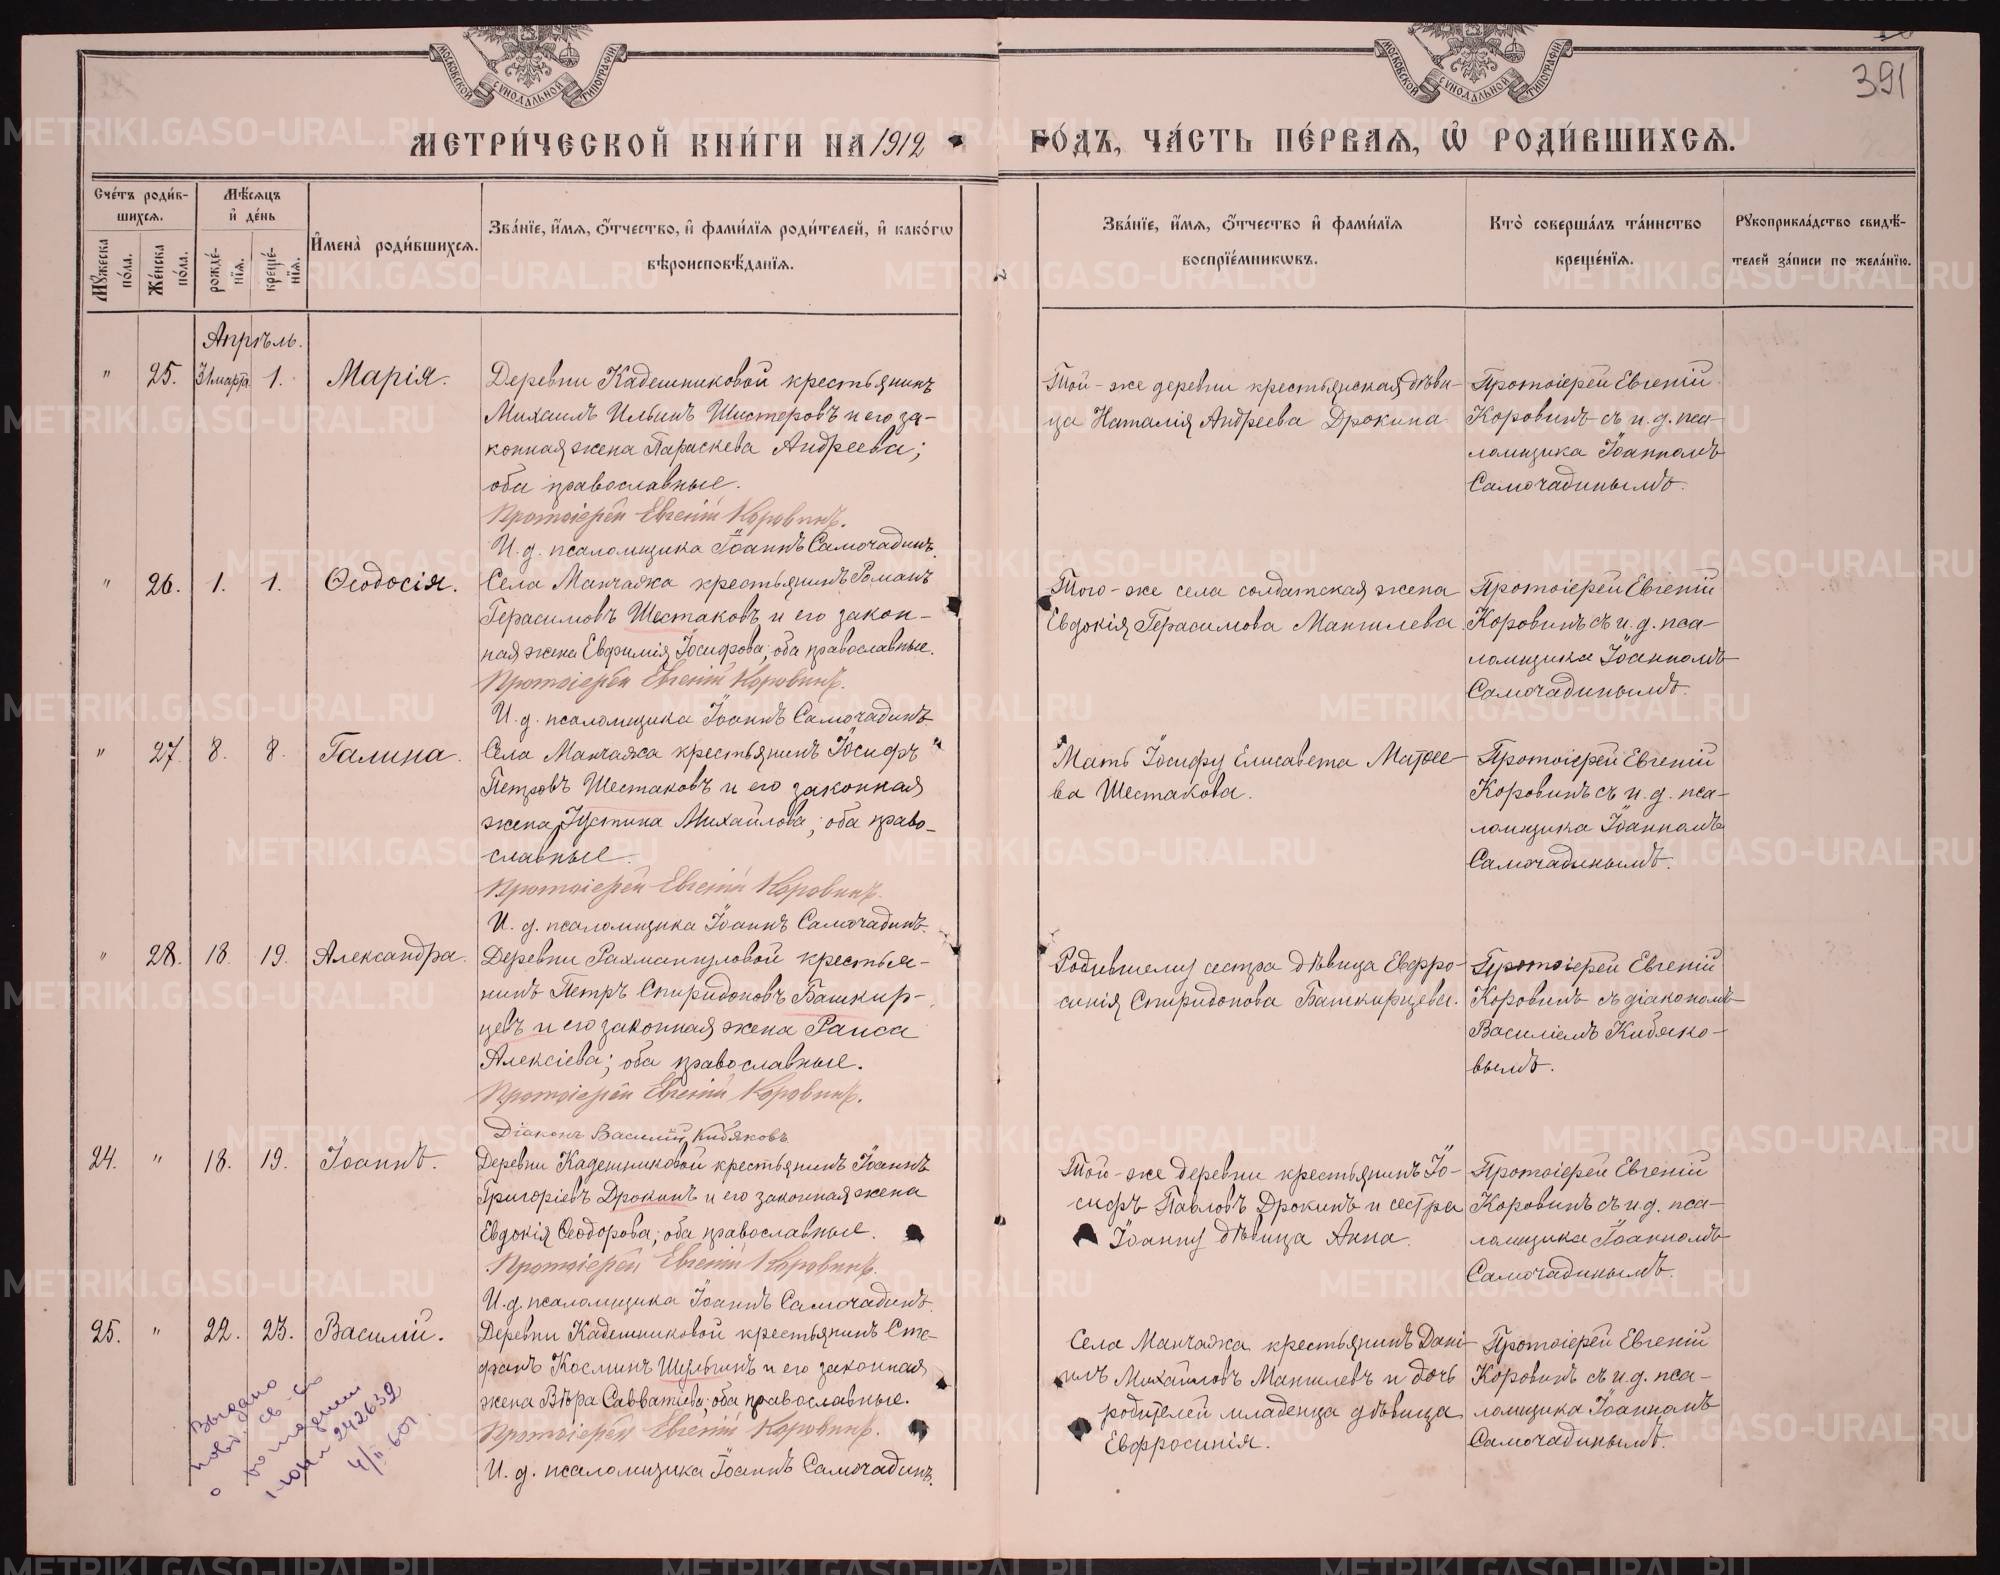 МОСКОВСКОЙ СѴНОДАЛЬНОЙ ТИПОГРАФІИ
МОСКОВСКОЙ СѴНОДАЛЬНОЙ ТИПОГРАФІИ
391
МЕТРИ́ЧЕСКОЙ КНИ́ГИ НА 1912
ГО́ДЪ, ЧА́СТЬ ПЕ́РВАѦ, Ѡ҆ РОДИ́ВШИХСѦ.
Сче́тъ роди́в-
шихсѧ.
Мꙋжеска по́ла.
Же́нска по́ла.
Мѣ́сѧцъ
и҆ де́нь
рожде́-
нїѧ.
креще́-
нїѧ.
И҆мена̀ роди́вшихсѧ.
Зва́нїе, и҆́мѧ, ѻ҆́тчество, и҆ фами́лїѧ роди́телей, и҆ како́гѡ
вѣроисповѣ́данїѧ.
Зва́нїе, и҆́мѧ, ѻ҆́тчество и҆ фами́лїѧ
воспрїе́мникѡвъ.
Кто̀ соверша́лъ та́инство
креще́нїѧ.
Рꙋкоприкла́дство свидѣ́-
телей за́писи по жела́нїю.
Апрѣль.
" 25. 31 марта 1. Марія.
Деревни Кадешниковой крестьянинъ
Михаилъ Ильинъ Шистеровъ и его за-
конная жена Параскева Андреева;
оба православные.
Протоіерей Евгеній Коровинъ.
И. д. псаломщика Іоаннъ Самочадинъ.
Той-же деревни крестьянская дѣви-
ца Наталія Андреева Дрокина
Протоіерей Евгеній
Коровинъ съ и. д. пса-
ломщика Іоанномъ
Самочадинымъ.
" 26. 1. 1. Ѳеодосія.
Села Манчажа крестьянинъ Романъ
Герасимовъ Шестаковъ и его закон-
ная жена Евфимія Іосифова; оба православные.
Протоіерей Евгеній Коровинъ.
И. д. псаломщика Іоаннъ Самочадинъ
Того-же села солдатская жена
Евдокія Герасимова Мангилева.
Протоіерей Евгеній
Коровинъ съ и. д. пса-
ломщика Іоанномъ
Самочадинымъ.
" 27. 8. 8. Галина.
Села Манчажа крестьянинъ Іосифъ
Петровъ Шестаковъ и его законная
жена Іустина Михайлова; оба право-
славные.
Протоіерей Евгеній Коровинъ.
И. д. псаломщика Іоаннъ Самочадинъ.
Мать Іосифу Елисавета Матѳее-
ва Шестакова.
Протоіерей Евгеній
Коровинъ съ и. д. пса-
ломщика Іоанномъ
Самочадинымъ.
" 28. 18. 19. Александра.
Деревни Рахмангуловой крестья-
нинъ Петръ Спиридоновъ Башкир-
цевъ и его законная жена Раиса
Алексіева; оба православные.
Протоіерей Евгеній Коровинъ.
Діаконъ Василій Кибяковъ
Родившему сестра дѣвица Евфро-
синія Спиридонова Башкирцева.
Протоіерей Евгеній
Коровинъ съ діакономъ
Василіемъ Кибяко-
вымъ.
24. " 18. 19. Іоаннъ.
Деревни Кадешниковой крестьянинъ Іоаннъ
Григоріевъ Дрокинъ и его законная жена
Евдокія Ѳеодорова; оба православные.
Протоіерей Евгеній Коровинъ.
И. д. псаломщика Іоаннъ Самочадинъ.
Той-же деревни крестьянинъ Іо-
сифъ Павловъ Дрокинъ и сестра
Іоанну дѣвица Анна.
Протоіерей Евгеній
Коровинъ съ и. д. пса-
ломщика Іоанномъ
Самочадинымъ.
25. " 22. 23. Василій.
Деревни Кадешниковой крестьянинъ Сте-
фанъ Косминъ Шульгинъ и его законная
жена Вѣра Савватіева; оба православные.
Протоіерей Евгеній Коровинъ.
И. д. псаломщика Іоаннъ Самочадинъ.
Села Манчажа крестьянинъ Дані-
илъ Михайловъ Мангилевъ и дочь
родителей младенца дѣвица
Евфросинія.
Протоіерей Евгеній
Коровинъ съ и. д. пса-
ломщика Іоанномъ
Самочадинымъ.
Выдано
повт. св-во
о рождении
242632
METRIKI.GASO-URAL.RU